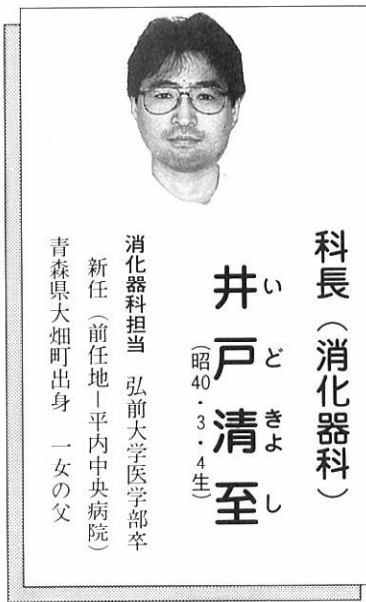 科長（消化器科）
いどきよし
井戸清至
（昭40・3・4生）
消化器科担当　弘前大学医学部卒
新任（前任地―平内中央病院）
青森県大畑町出身　一女の父